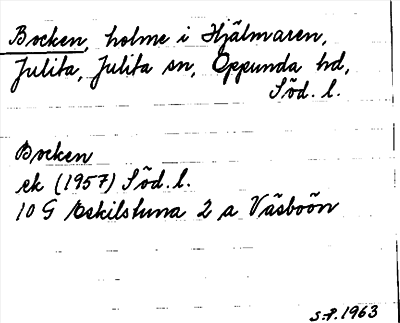 Bocken, holme i Hjälmaren,
Julita, Julita sn, Oppunda hd,
Söd. l.
Bocken
ek (1957) Söd. l.
10 G Eskilstuna 2 a Väsboön
S.P. 1963